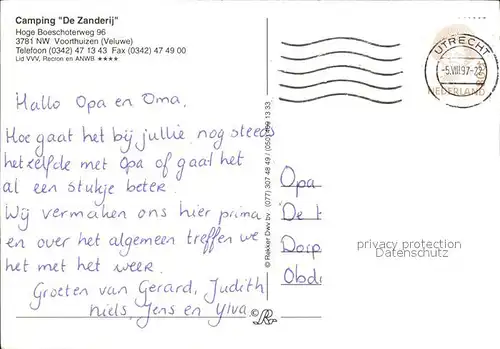 Camping "De Zanderij"
Hoge Boeschoterweg 96
3781 NW Voorthuizen (Veluwe)
Telefoon (0342) 47 13 43 Fax (0342) 47 49 00
Lid VVV, Recron en ANWB ★★★★
UTRECHT
-5.VIII.97-22
NEDERLAND
Hallo Opa en Oma,
Hoe gaat het bij jullie nog steeds
hetzelfde met Opa of gaat het
al een stukje beter.
Wij vermaken ons hier prima
en over het algemeen treffen we
het met het weer.
Groeten van Gerard, Judith
Niels, Jens en Ylva
© Rekker Dwv bv (077) 307 48 49 / (050) 409 13 33
Opa
De
Dorp
Obd
privacy protection
Datenschutz
©